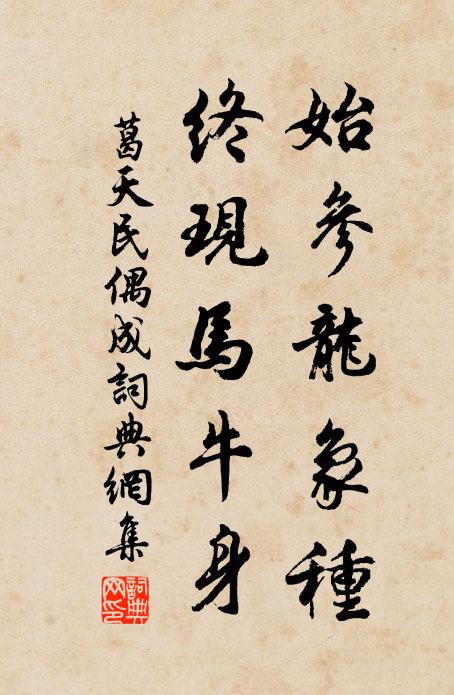 始參龍象種
終現馬牛身
葛天民偶成詞典網集
詞典網印